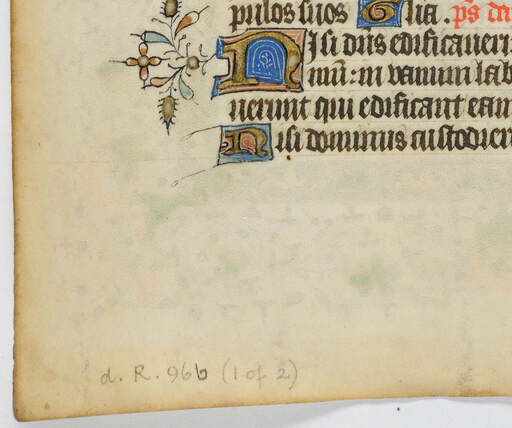 pulos suos Glia. ps da
Nisi dns edificaueri
mu: in vanum lab
uerunt qui edificant eam
Nisi dominus custodieri
d. R. 966 (1 of 2)